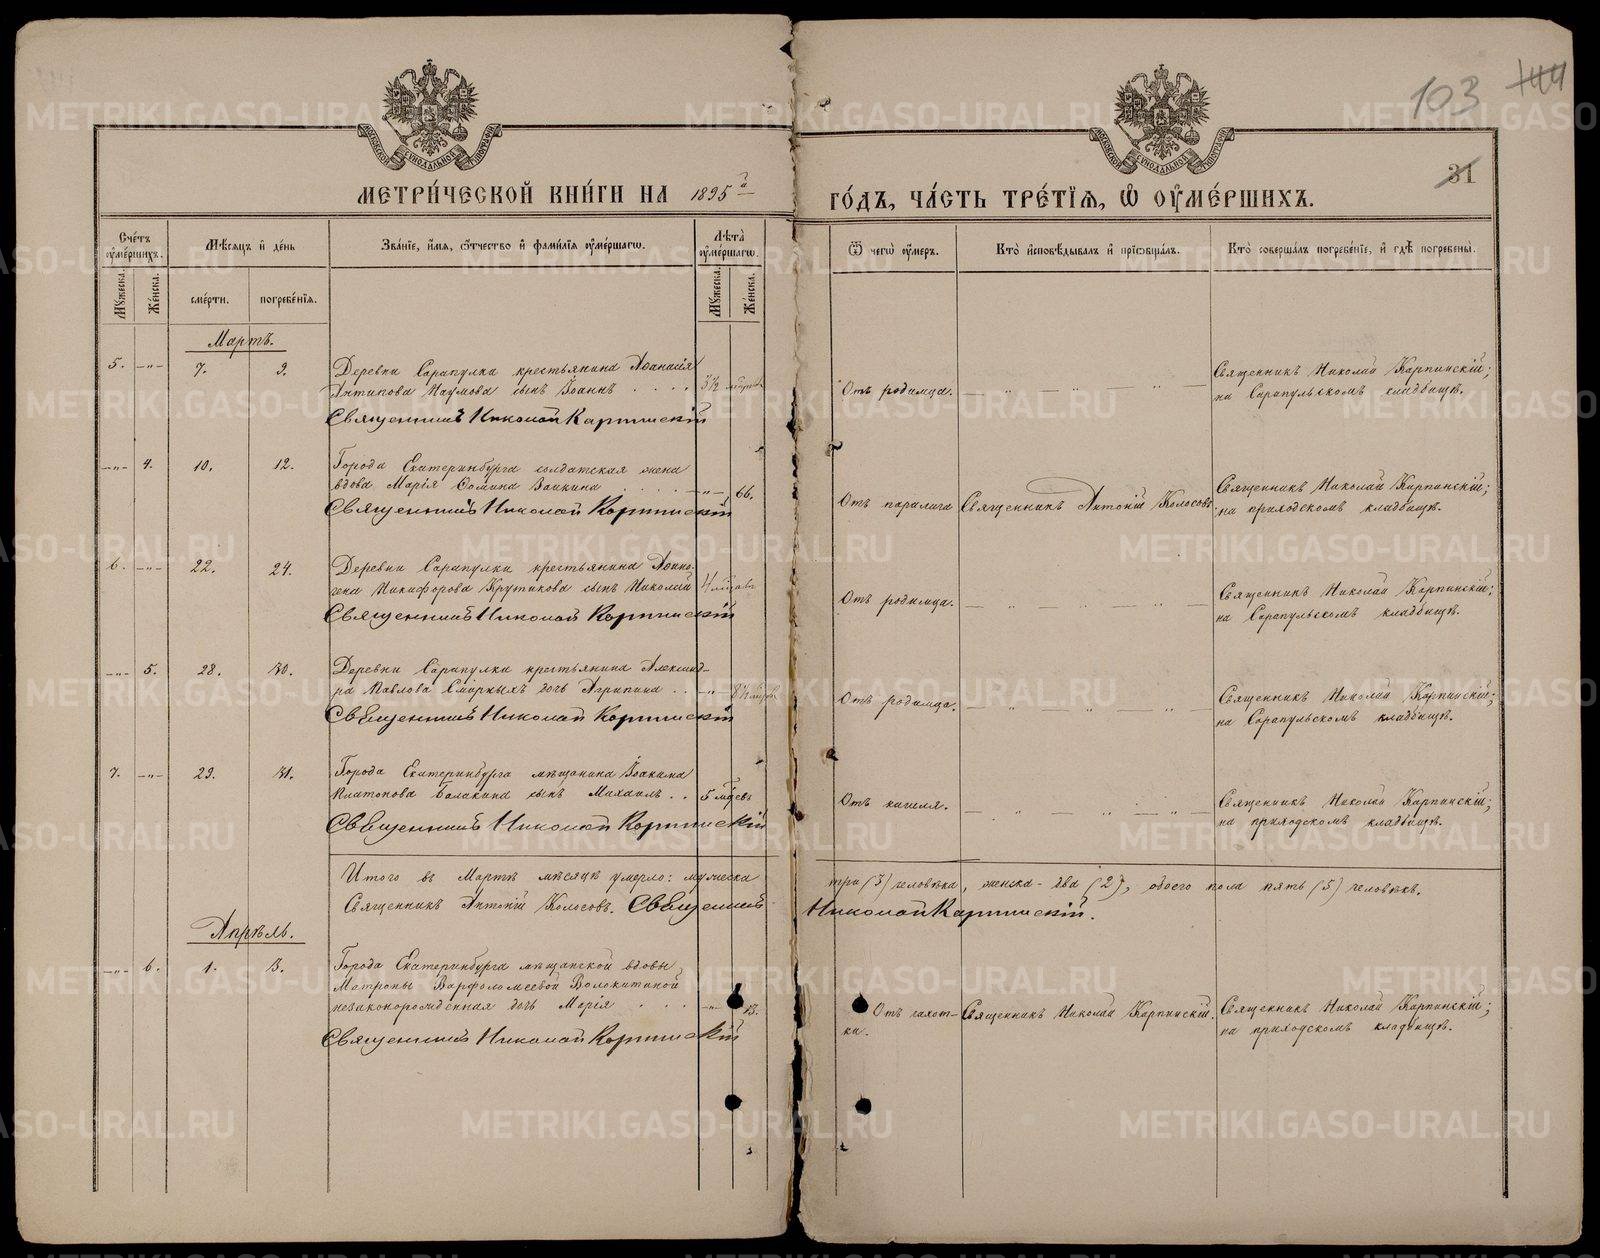 103
31
МОСКОВСКОЙ СѴНОДАЛЬНОЙ ТИПОГРАФІИ
МОСКОВСКОЙ СѴНОДАЛЬНОЙ ТИПОГРАФІИ
МЕТРИ́ЧЕСКОЙ КНИ́ГИ НА 1895й ГО́ДЪ, ЧА́СТЬ ТРЕ́ТІЯ, Ѿ ОУМЕ́РШИХЪ.
Сче́тъ оуме́ршихъ.
Мꙋжеска.
Же́нска.
Мѣ́сяцъ и день
сме́рти.
погребе́нія.
Зва́ніе, и́мя, ѻ́тчество и фами́лія оуме́ршагѡ.
Лѣта̀ оуме́ршагѡ.
Мꙋжеска.
Же́нска.
Ѿ чегѡ̀ оу́меръ.
Кто̀ исповѣ́дывалъ и пріѡбща́лъ.
Кто̀ соверша́лъ погребе́ніе, и гдѣ̀ погребены̀.
Мартъ.
5. -„- 7. 9. Деревни Сарапулки крестьянина Аѳанасія
Антипова Наумова сынъ Іоаннъ . . . . 3½
Священникъ Николай Карпинскій
Отъ родимца.
Священникъ Николай Карпинскій;
на Сарапульскомъ кладбищѣ.
-„- 4. 10. 12. Города Екатеринбурга солдатская жена
вдова Марія Ѳомина Заикина . . . . -„- 66.
Священникъ Николай Карпинскій
Отъ паралича Священникъ Антоній Колосовъ.
Священникъ Николай Карпинскій;
на приходскомъ кладбищѣ.
6. -„- 22. 24. Деревни Сарапулки крестьянина Аѳино-
гена Никифорова Крутикова сынъ Николай 4 мѣсяцъ
Священникъ Николай Карпинскій
Отъ родимца.
Священникъ Николай Карпинскій;
на Сарапульскомъ кладбищѣ.
-„- 5. 28. 30. Деревни Сарапулки крестьянина Александ-
ра Павлова Смѣрныхъ дочь Агрипина . . -„- 8½
Священникъ Николай Карпинскій
Отъ родимца.
Священникъ Николай Карпинскій;
на Сарапульскомъ кладбищѣ.
7. -„- 29. 31. Города Екатеринбурга мѣщанина Іоакима
Платонова Балакина сынъ Михаилъ . . 5 мѣсяцъ
Священникъ Николай Карпинскій
Отъ кашля.
Священникъ Николай Карпинскій;
на приходскомъ кладбищѣ.
Итого въ Мартѣ мѣсяцѣ умерло: мужеска три (3) человѣка, женска - два (2), обоего пола пять (5) человѣкъ.
Священникъ Антоній Колосовъ. Священникъ Николай Карпинскій.
Апрѣль.
-„- 6. 1. 3. Города Екатеринбурга мѣщанской вдовы
Матроны Варѳоломеевой Волокитиной
незаконорожденная дочь Марія . . . -„- 13.
Священникъ Николай Карпинскій
Отъ чахот-
ки.
Священникъ Николай Карпинскій.
Священникъ Николай Карпинскій;
на приходскомъ кладбищѣ.
METRIKI.GASO-URAL.RU